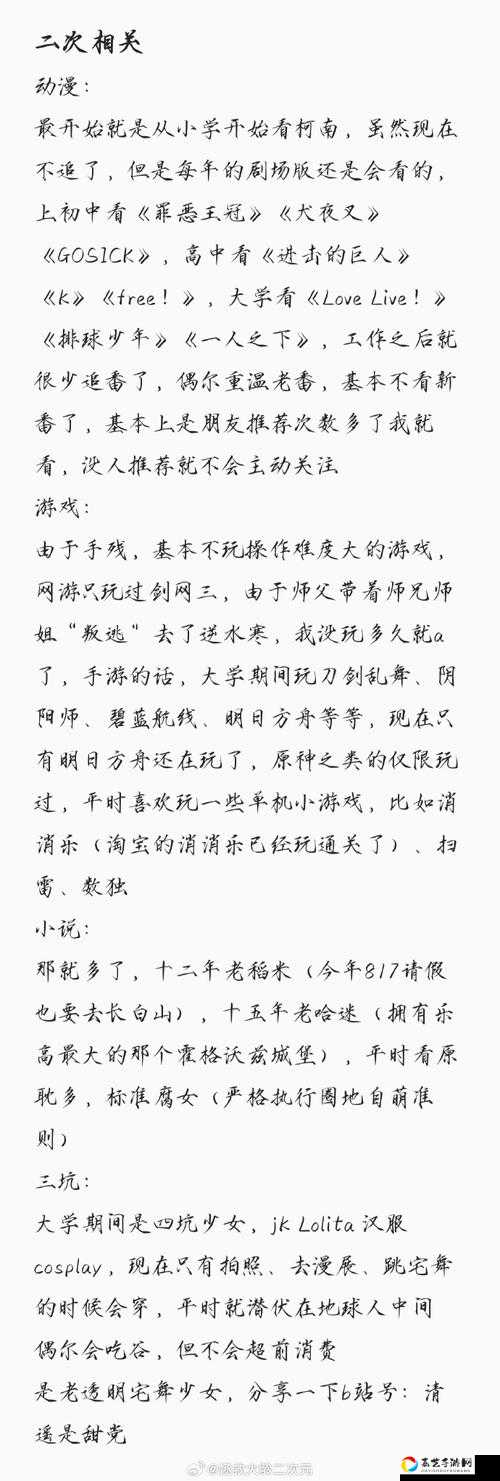 二次相关
动漫：
最开始就是从小学开始看柯南，虽然现在
不追了，但是每年的剧场版还是会看的，
上初中看《罪恶王冠》《犬夜叉》
《GOSICK》，高中看《进击的巨人》
《K》《free！》，大学看《Love Live！》
《排球少年》《一人之下》，工作之后就
很少追番了，偶尔重温老番，基本不看新
番了，基本上是朋友推荐次数多了我就
看，没人推荐就不会主动关注
游戏：
由于手残，基本不玩操作难度大的游戏，
网游只玩过剑网三，由于师父带着师兄师
姐“叛逃”去了逆水寒，我没玩多久就a
了，手游的话，大学期间玩刀剑乱舞、阴
阳师、碧蓝航线、明日方舟等等，现在只
有明日方舟还在玩了，原神之类的仅限玩
过，平时喜欢玩一些单机小游戏，比如消
消乐（淘宝的消消乐已经玩通关了）、扫
雷、数独
小说：
那就多了，十二年老稻米（今年817请假
也要去长白山），十五年老哈迷（拥有乐
高最大的那个霍格沃兹城堡），平时看原
耽多，标准腐女（严格执行圈地自萌准
则）
三坑：
大学期间是四坑少女，jk Lolita 汉服
cosplay，现在只有拍照、去漫展、跳宅舞
的时候会穿，平时就潜伏在地球人中间
偶尔会吃谷，但不会超前消费
是老透明宅舞少女，分享一下b站号：清
遥是甜党
@拯救大龄二次元
高艺手游网